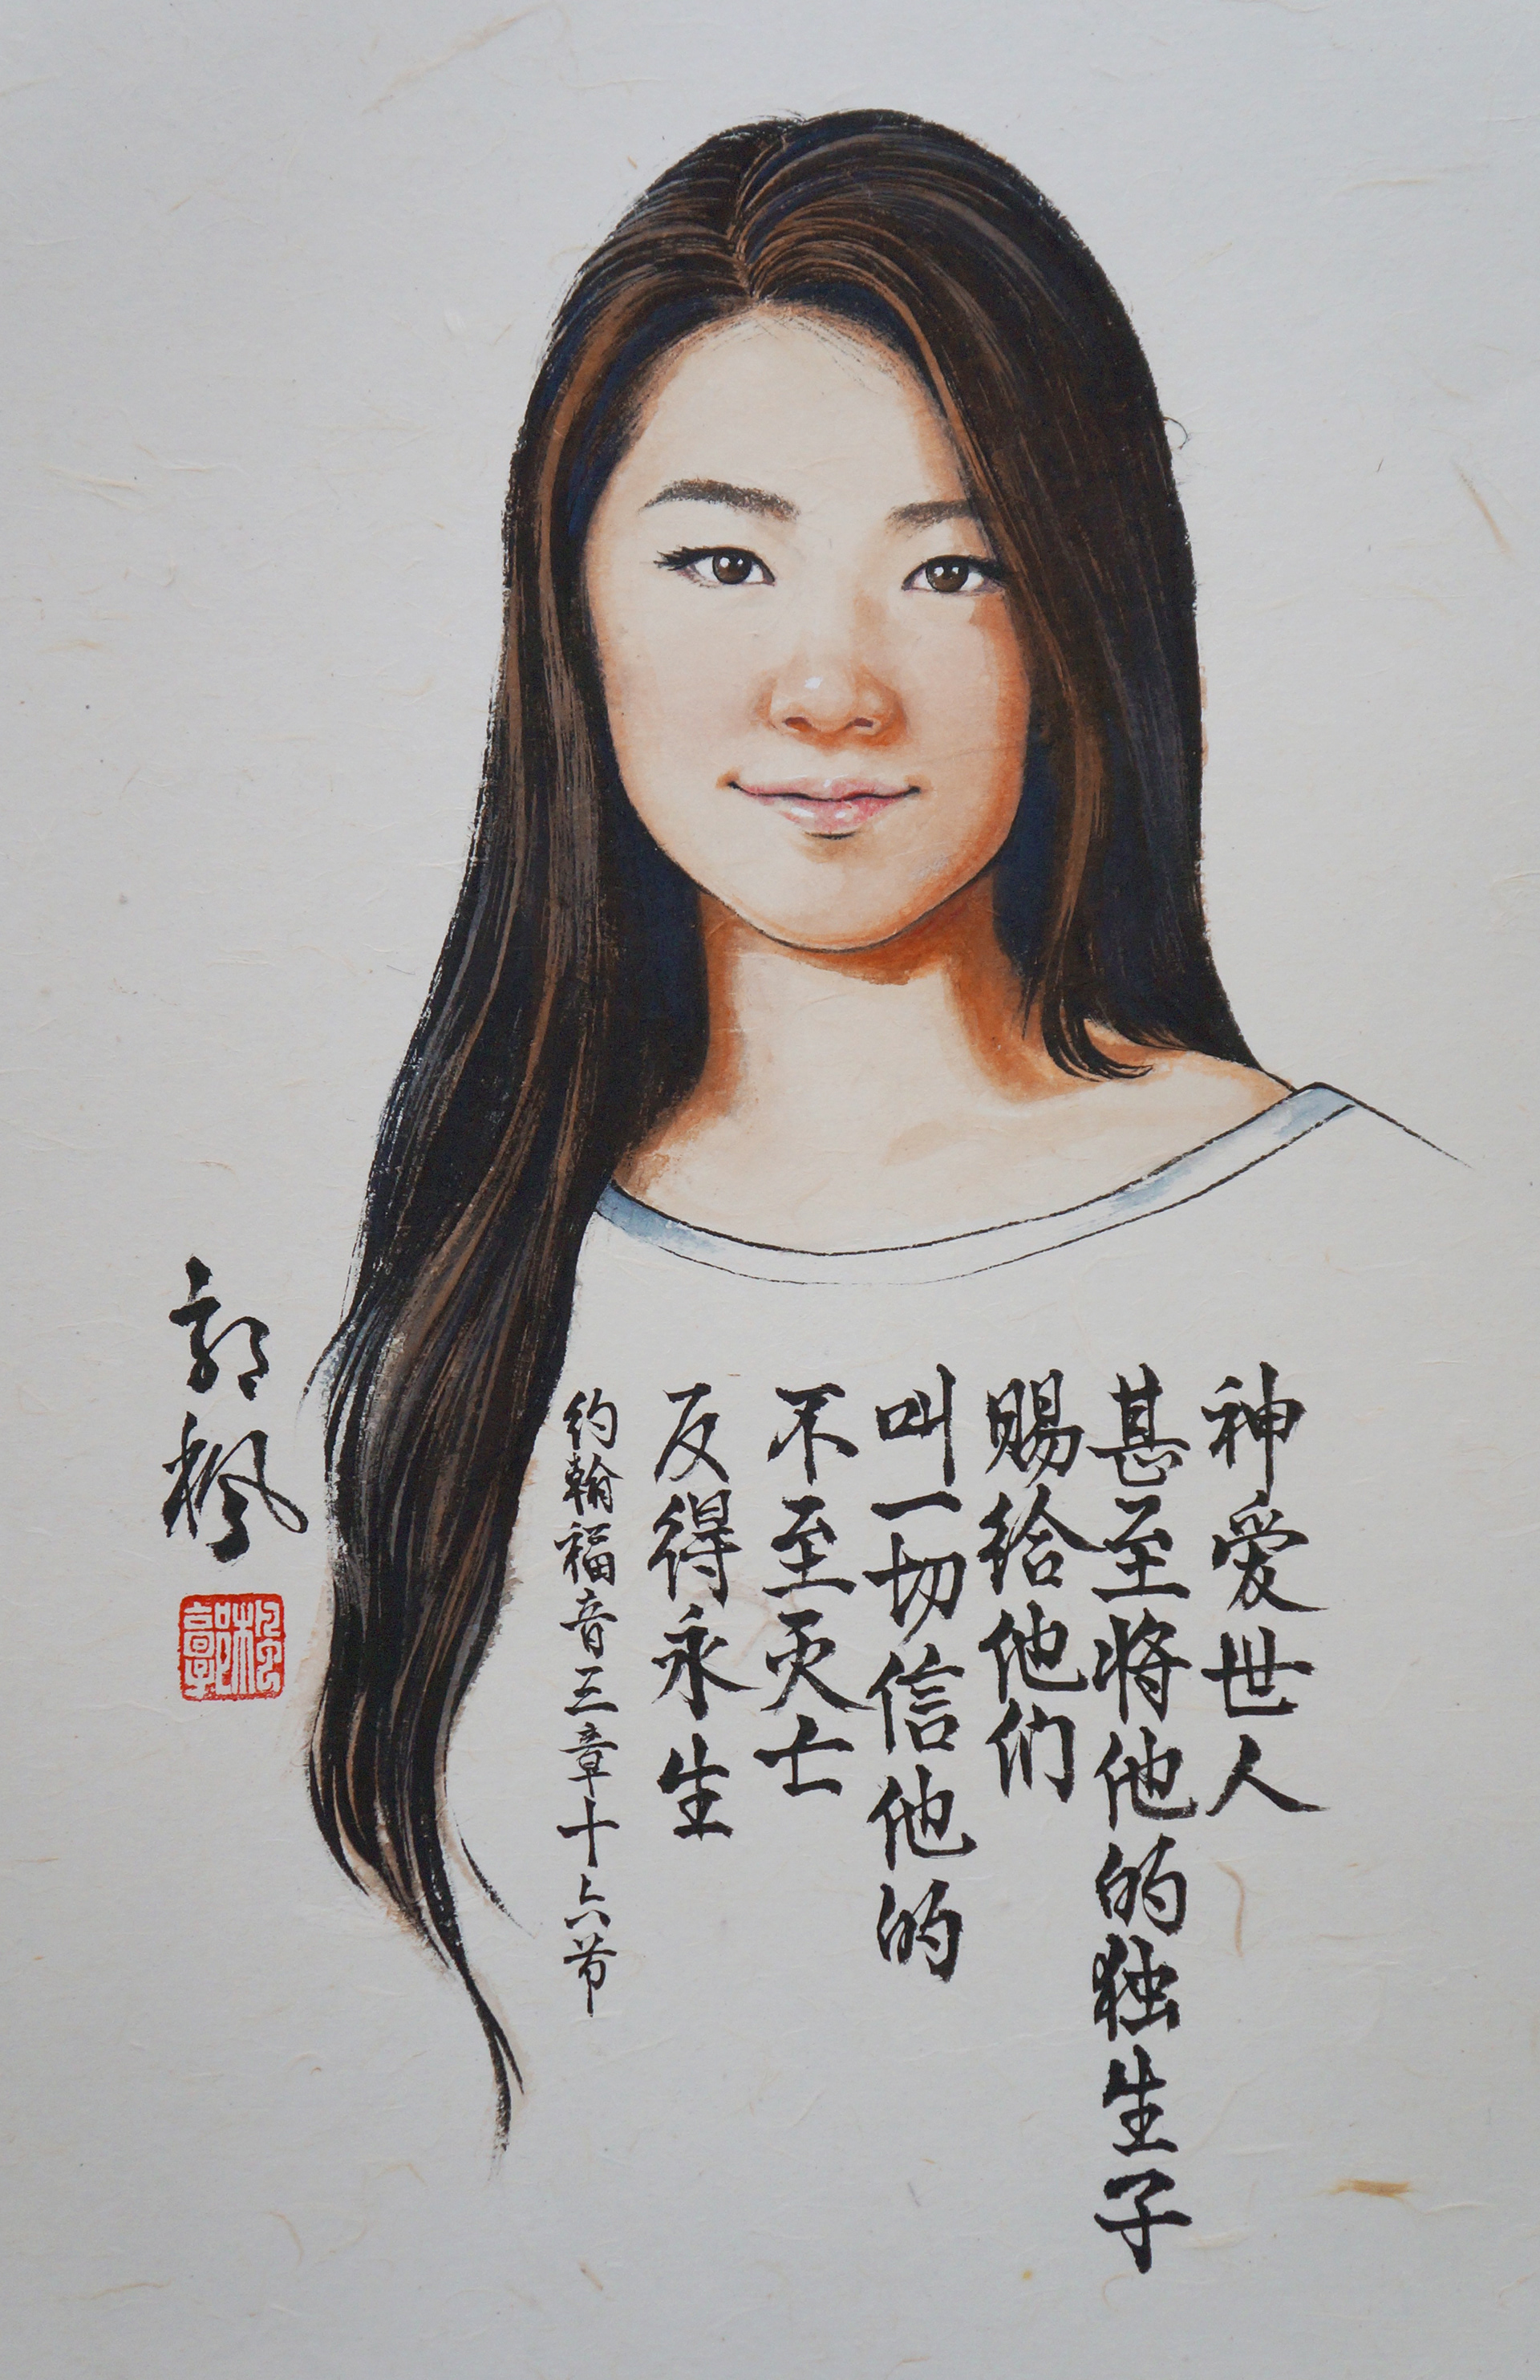 神爱世人
甚至将他的独生子
赐给他们
叫一切信他的
不至灭亡
反得永生
约翰福音三章十六节
郭枫